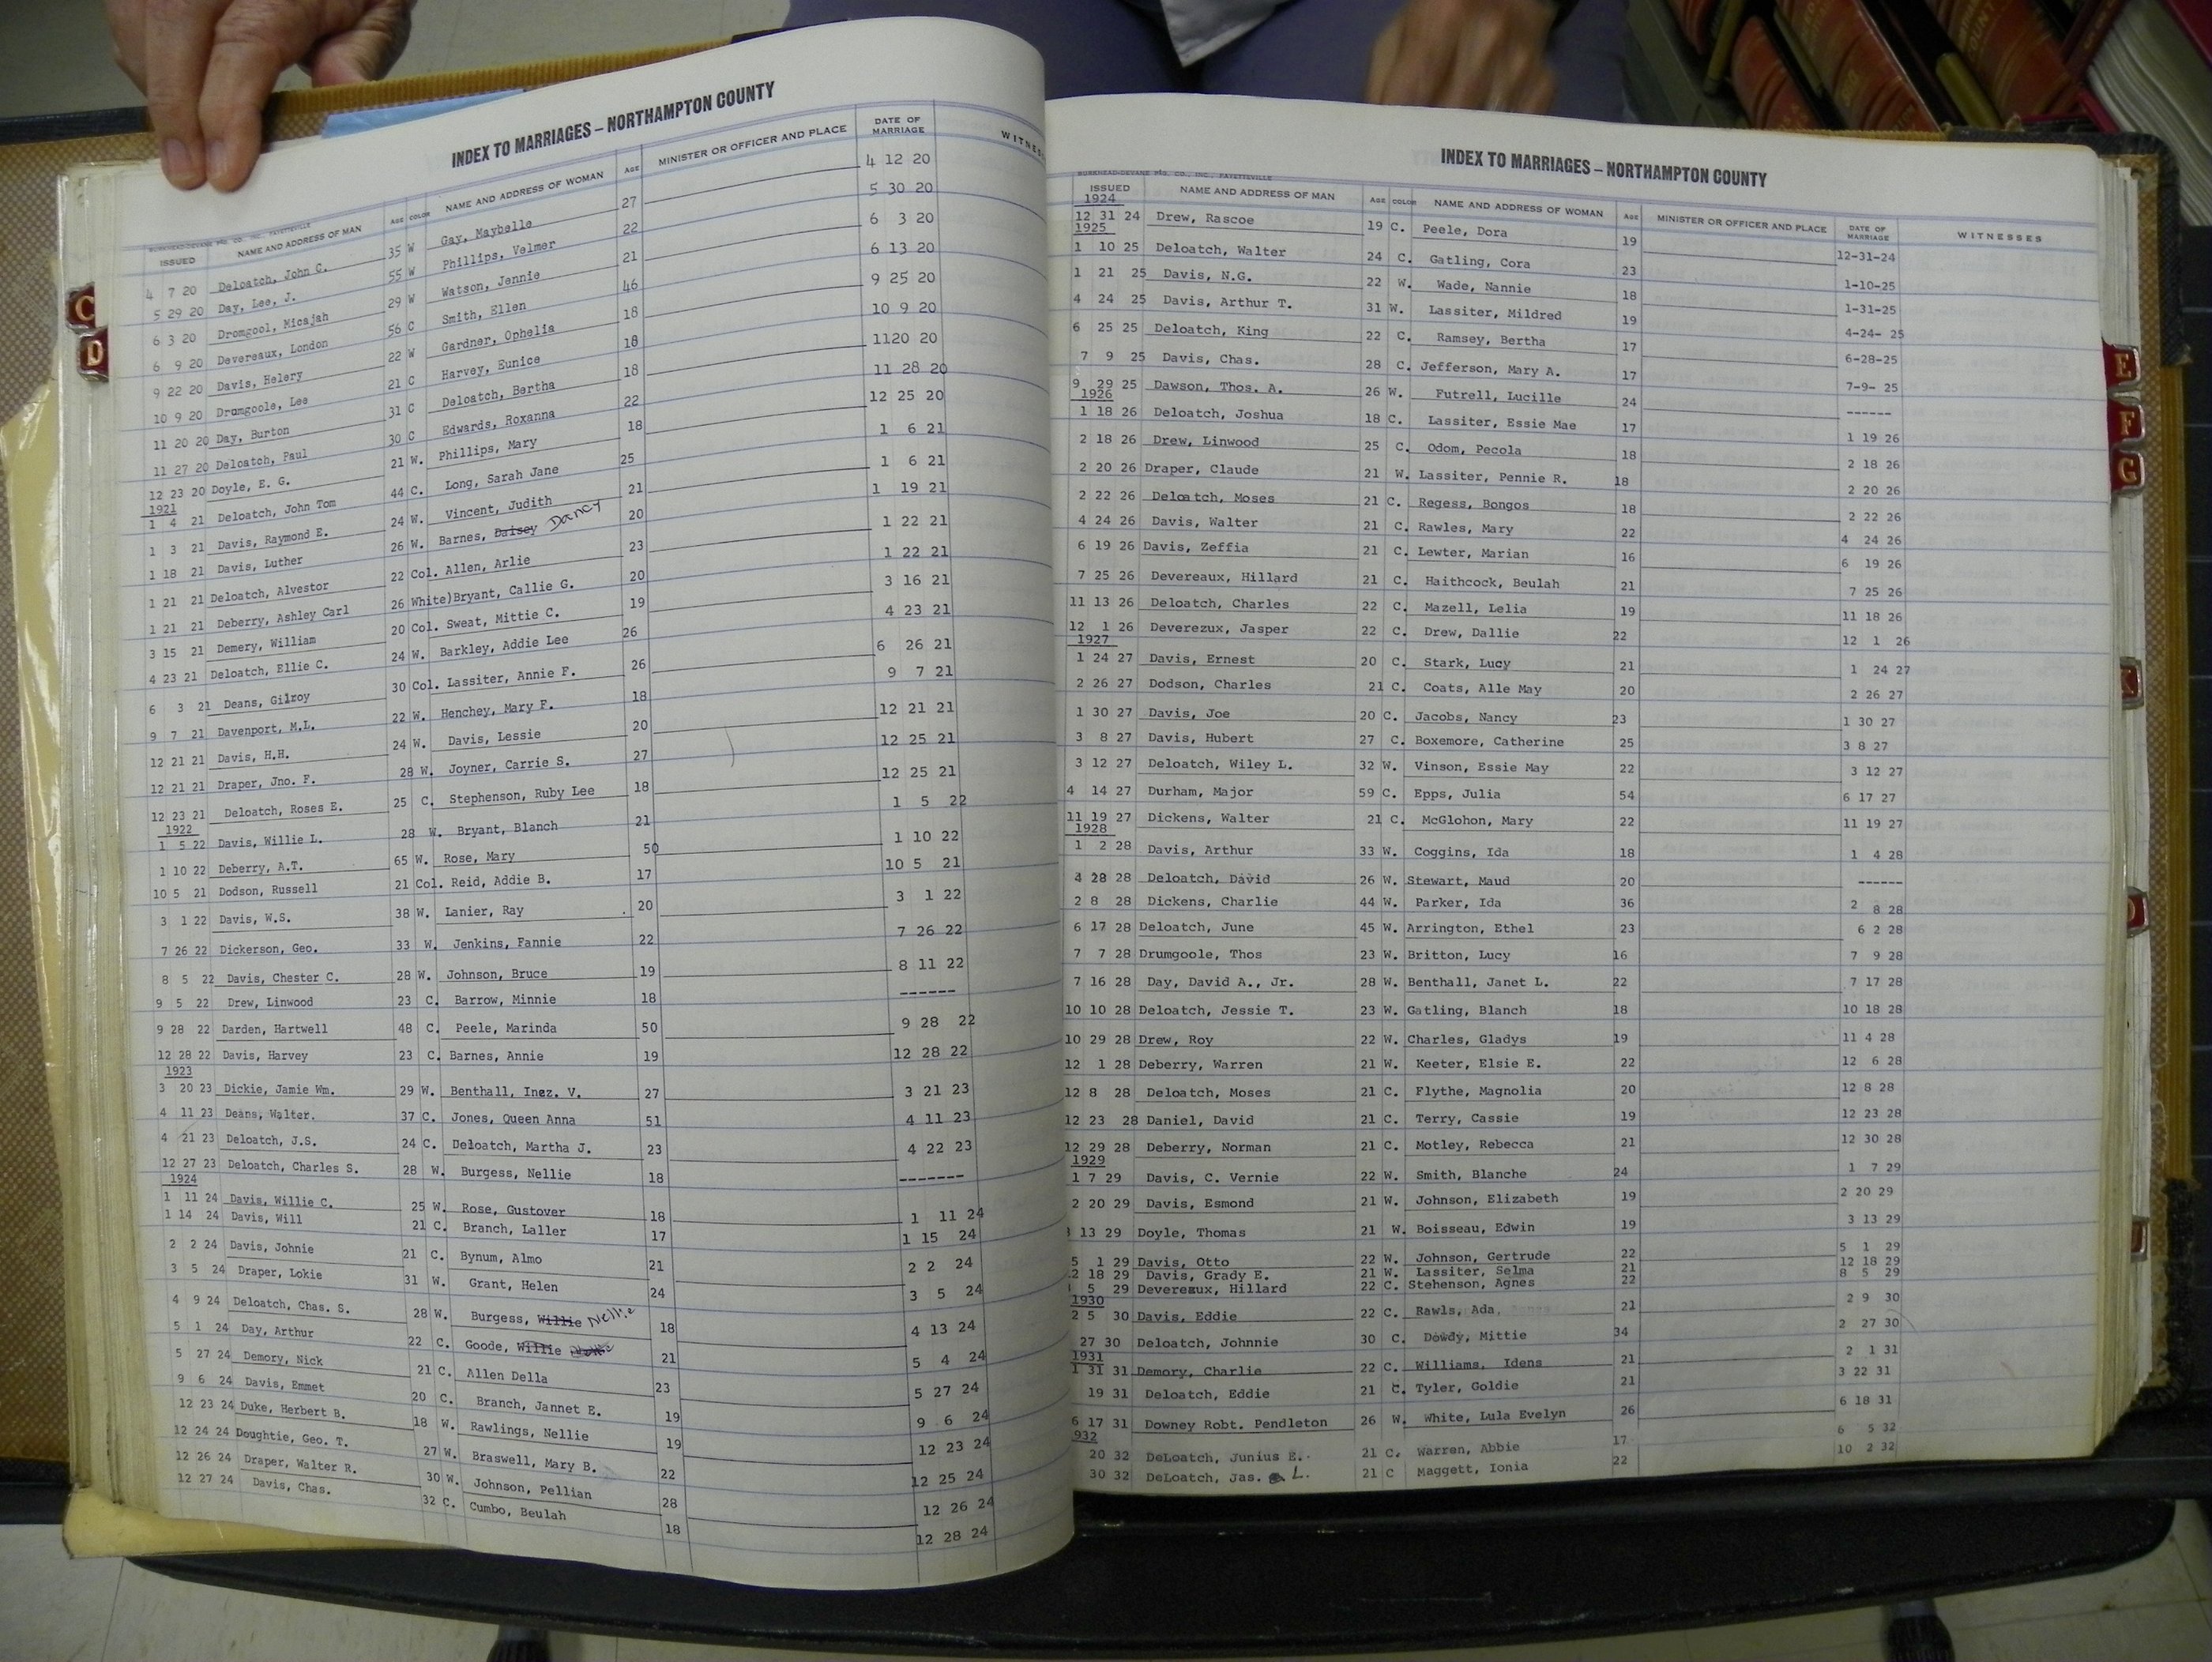 INDEX TO MARRIAGES – NORTHAMPTON COUNTY
BURKHEAD-DEVANE PTG. CO., INC., FAYETTEVILLE
ISSUED NAME AND ADDRESS OF MAN AGE COLOR NAME AND ADDRESS OF WOMAN AGE MINISTER OR OFFICER AND PLACE DATE OF MARRIAGE
4 7 20 Deloatch, John C. 35 W Gay, Maybelle 27 4 12 20
5 29 20 Day, Lee, J. 55 W Phillips, Velmer 22 5 30 20
6 3 20 Dromgool, Micajah 29 W Watson, Jennie 21 6 3 20
6 9 20 Devereaux, London 56 C Smith, Ellen 46 6 13 20
9 22 20 Davis, Helery 22 W Gardner, Ophelia 18 9 25 20
10 9 20 Drumgoole, Lee 21 C Harvey, Eunice 18 10 9 20
11 20 20 Day, Burton 31 C Deloatch, Bertha 18 1120 20
11 27 20 Deloatch, Paul 30 C Edwards, Roxanna 22 11 28 20
12 23 20 Doyle, E. G. 21 W. Phillips, Mary 18 12 25 20
1921
1 4 21 Deloatch, John Tom 44 C. Long, Sarah Jane 25 1 6 21
1 3 21 Davis, Raymond E. 24 W. Vincent, Judith 21 1 6 21
1 18 21 Davis, Luther 26 W. Barnes, Daisey Dancy 20 1 19 21
1 21 21 Deloatch, Alvestor 22 Col. Allen, Arlie 23 1 22 21
1 21 21 Deberry, Ashley Carl 26 White)Bryant, Callie G. 20 1 22 21
3 15 21 Demery, William 20 Col. Sweat, Mittie C. 19 3 16 21
4 23 21 Deloatch, Ellie C. 24 W. Barkley, Addie Lee 26 4 23 21
6 3 21 Deans, Gilroy 30 Col. Lassiter, Annie F. 26 6 26 21
9 7 21 Davenport, M.L. 22 W. Henchey, Mary F. 18 9 7 21
12 21 21 Davis, H.H. 24 W. Davis, Lessie 20 12 21 21
12 21 21 Draper, Jno. F. 28 W. Joyner, Carrie S. 27 12 25 21
12 23 21 Deloatch, Roses E. 25 C. Stephenson, Ruby Lee 18 12 25 21
1922
1 5 22 Davis, Willie L. 28 W. Bryant, Blanch 21 1 5 22
1 10 22 Deberry, A.T. 65 W. Rose, Mary 50 1 10 22
10 5 21 Dodson, Russell 21 Col. Reid, Addie B. 17 10 5 21
3 1 22 Davis, W.S. 38 W. Lanier, Ray 20 3 1 22
7 26 22 Dickerson, Geo. 33 W. Jenkins, Fannie 22 7 26 22
8 5 22 Davis, Chester C. 28 W. Johnson, Bruce 19 8 11 22
9 5 22 Drew, Linwood 23 C. Barrow, Minnie 18 ------
9 28 22 Darden, Hartwell 48 C. Peele, Marinda 50 9 28 22
12 28 22 Davis, Harvey 23 C. Barnes, Annie 19 12 28 22
1923
3 20 23 Dickie, Jamie Wm. 29 W. Benthall, Inez. V. 27 3 21 23
4 11 23 Deans, Walter. 37 C. Jones, Queen Anna 51 4 11 23
4 21 23 Deloatch, J.S. 24 C. Deloatch, Martha J. 23 4 22 23
12 27 23 Deloatch, Charles S. 28 W. Burgess, Nellie 18 -------
1924
1 11 24 Davis, Willie C. 25 W. Rose, Gustover 18 1 11 24
1 14 24 Davis, Will 21 C. Branch, Laller 17 1 15 24
2 2 24 Davis, Johnie 21 C. Bynum, Almo 21 2 2 24
3 5 24 Draper, Lokie 31 W. Grant, Helen 24 3 5 24
4 9 24 Deloatch, Chas. S. 28 W. Burgess, Willie Nellie 18 4 13 24
5 1 24 Day, Arthur 22 C. Goode, Willie 21 5 4 24
5 27 24 Demory, Nick 21 C. Allen Della 23 5 27 24
9 6 24 Davis, Emmet 20 C. Branch, Jannet E. 19 9 6 24
12 23 24 Duke, Herbert B. 18 W. Rawlings, Nellie 19 12 23 24
12 24 24 Doughtie, Geo. T. 27 W. Braswell, Mary B. 22 12 25 24
12 26 24 Draper, Walter R. 30 W. Johnson, Pellian 28 12 26 24
12 27 24 Davis, Chas. 32 C. Cumbo, Beulah 18 12 28 24
INDEX TO MARRIAGES – NORTHAMPTON COUNTY
BURKHEAD-DEVANE PTG. CO., INC., FAYETTEVILLE
ISSUED NAME AND ADDRESS OF MAN AGE COLOR NAME AND ADDRESS OF WOMAN AGE MINISTER OR OFFICER AND PLACE DATE OF MARRIAGE WITNESSES
1924
12 31 24 Drew, Rascoe 19 C. Peele, Dora 19 12-31-24
1925
1 10 25 Deloatch, Walter 24 C. Gatling, Cora 23 1-10-25
1 21 25 Davis, N.G. 22 W. Wade, Nannie 18 1-31-25
4 24 25 Davis, Arthur T. 31 W. Lassiter, Mildred 19 4-24- 25
6 25 25 Deloatch, King 22 C. Ramsey, Bertha 17 6-28-25
7 9 25 Davis, Chas. 28 C. Jefferson, Mary A. 17 7-9- 25
9 29 25 Dawson, Thos. A. 26 W. Futrell, Lucille 24 ------
1926
1 18 26 Deloatch, Joshua 18 C. Lassiter, Essie Mae 17 1 19 26
2 18 26 Drew, Linwood 25 C. Odom, Pecola 18 2 18 26
2 20 26 Draper, Claude 21 W. Lassiter, Pennie R. 18 2 20 26
2 22 26 Deloatch, Moses 21 C. Regess, Bongos 18 2 22 26
4 24 26 Davis, Walter 21 C. Rawles, Mary 22 4 24 26
6 19 26 Davis, Zeffia 21 C. Lewter, Marian 16 6 19 26
7 25 26 Devereaux, Hillard 21 C. Haithcock, Beulah 21 7 25 26
11 13 26 Deloatch, Charles 22 C. Mazell, Lelia 19 11 18 26
12 1 26 Deverezux, Jasper 22 C. Drew, Dallie 22 12 1 26
1927
1 24 27 Davis, Ernest 20 C. Stark, Lucy 21 1 24 27
2 26 27 Dodson, Charles 21 C. Coats, Alle May 20 2 26 27
1 30 27 Davis, Joe 20 C. Jacobs, Nancy 23 1 30 27
3 8 27 Davis, Hubert 27 C. Boxemore, Catherine 25 3 8 27
3 12 27 Deloatch, Wiley L. 32 W. Vinson, Essie May 22 3 12 27
4 14 27 Durham, Major 59 C. Epps, Julia 54 6 17 27
11 19 27 Dickens, Walter 21 C. McGlohon, Mary 22 11 19 27
1928
1 2 28 Davis, Arthur 33 W. Coggins, Ida 18 1 4 28
4 28 28 Deloatch, David 26 W. Stewart, Maud 20 ------
2 8 28 Dickens, Charlie 44 W. Parker, Ida 36 2 8 28
6 17 28 Deloatch, June 45 W. Arrington, Ethel 23 6 2 28
7 7 28 Drumgoole, Thos 23 W. Britton, Lucy 16 7 9 28
7 16 28 Day, David A., Jr. 28 W. Benthall, Janet L. 22 7 17 28
10 10 28 Deloatch, Jessie T. 23 W. Gatling, Blanch 18 10 18 28
10 29 28 Drew, Roy 22 W. Charles, Gladys 19 11 4 28
12 1 28 Deberry, Warren 21 W. Keeter, Elsie E. 22 12 6 28
12 8 28 Deloatch, Moses 21 C. Flythe, Magnolia 20 12 8 28
12 23 28 Daniel, David 21 C. Terry, Cassie 19 12 23 28
12 29 28 Deberry, Norman 21 C. Motley, Rebecca 21 12 30 28
1929
1 7 29 Davis, C. Vernie 22 W. Smith, Blanche 24 1 7 29
2 20 29 Davis, Esmond 21 W. Johnson, Elizabeth 19 2 20 29
13 29 Doyle, Thomas 21 W. Boisseau, Edwin 19 3 13 29
5 1 29 Davis, Otto 22 W. Johnson, Gertrude 22 5 1 29
2 18 29 Davis, Grady E. 21 W. Lassiter, Selma 21 12 18 29
5 29 Devereaux, Hillard 22 C. Stehenson, Agnes 22 8 5 29
1930
2 5 30 Davis, Eddie 22 C. Rawls, Ada, 21 2 9 30
27 30 Deloatch, Johnnie 30 C. Dowdy, Mittie 34 2 27 30
1931
1 31 31 Demory, Charlie 22 C. Williams, Idens 21 2 1 31
19 31 Deloatch, Eddie 21 C. Tyler, Goldie 21 3 22 31
6 17 31 Downey Robt. Pendleton 26 W. White, Lula Evelyn 26 6 18 31
932
20 32 DeLoatch, Junius E. 21 C. Warren, Abbie 17 6 5 32
30 32 DeLoatch, Jas. L. 21 C Maggett, Ionia 22 10 2 32
C
D
E
F
G